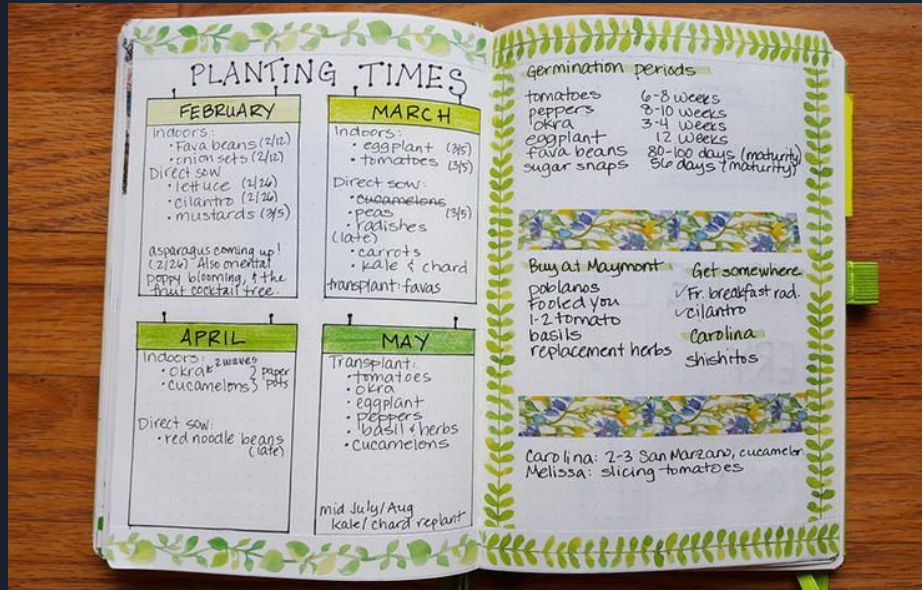 PLANTING TIMES
FEBRUARY
Indoors:
• Fava beans (2/12)
• onion sets (2/12)
Direct sow
• lettuce (2/26)
• cilantro (2/26)
• mustards (3/5)
asparagus coming up!
(2/26) Also oriental
poppy blooming, & the
fruit cocktail tree.
MARCH
Indoors:
• eggplant (3/5)
• tomatoes (3/5)
Direct sow:
• cucamelons
• peas (3/5)
• radishes
(late)
• carrots
• kale & chard
transplant: favas
APRIL
Indoors: 2 waves
• okra } paper
• cucamelons } pots
Direct sow:
• red noodle beans
(late)
MAY
Transplant:
• tomatoes
• okra
• eggplant
• peppers
• basil & herbs
• cucamelons
mid July/Aug
kale/chard replant
Germination periods
tomatoes 6-8 weeks
peppers 8-10 weeks
okra 3-4 weeks
eggplant 12 weeks
fava beans 80-100 days (maturity)
sugar snaps 56 days (maturity)
Buy at Maymont
poblanos
Fooled you
1-2 tomato
basils
replacement herbs
Get somewhere
✓Fr. breakfast rad.
✓cilantro
Carolina
shishitos
Carolina: 2-3 San Marzano, cucamelon
Melissa: slicing tomatoes